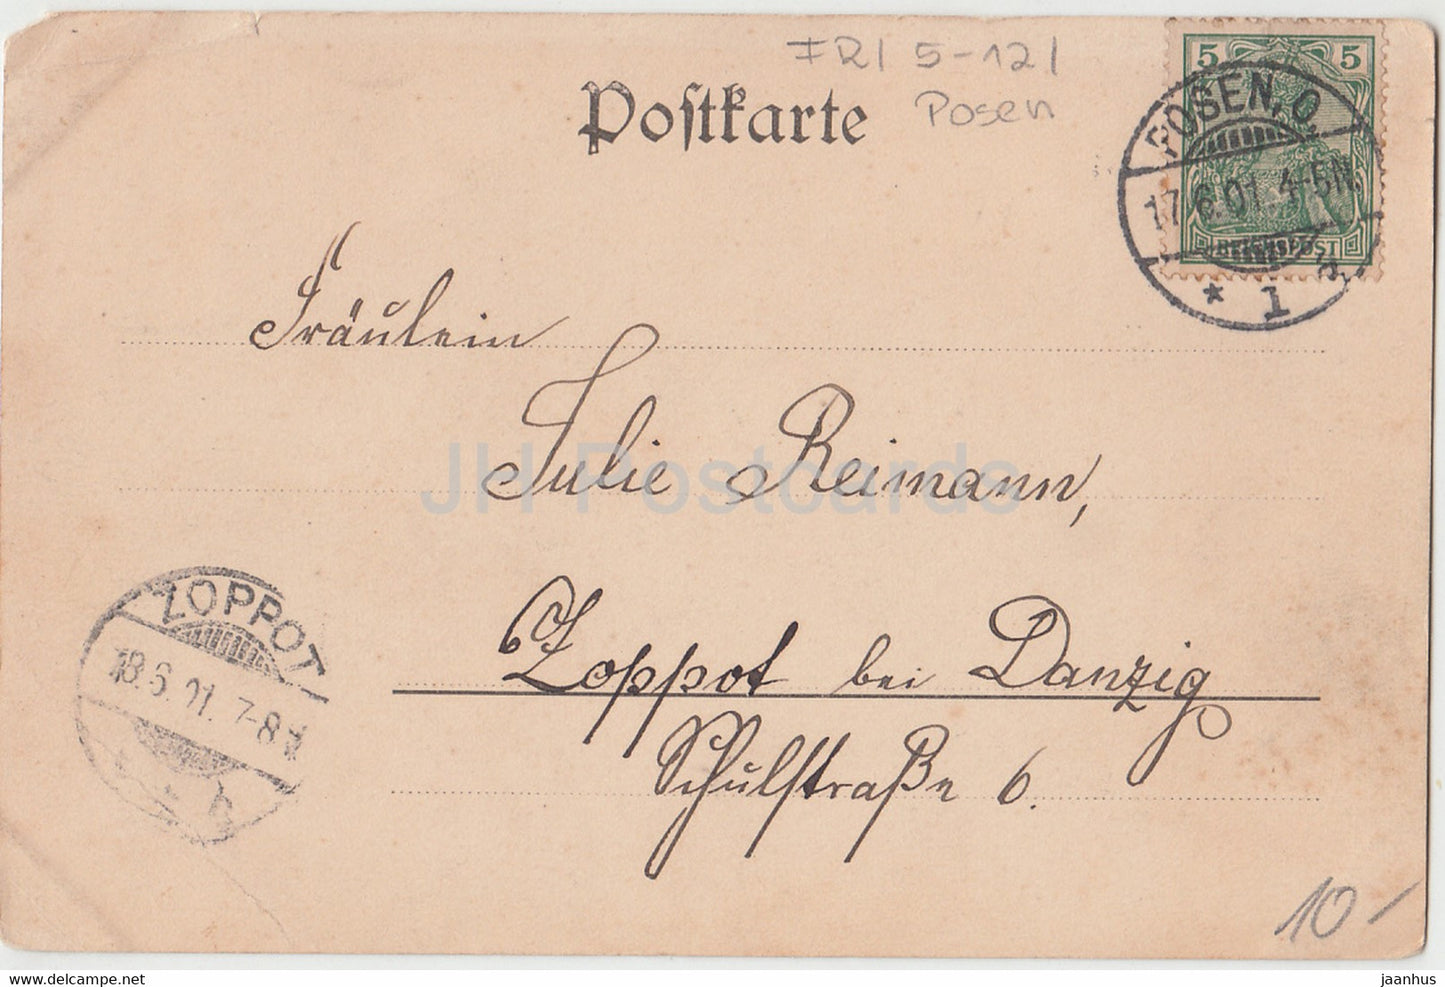 FRI 5-121
Posen
Postkarte
5 5
REICHSPOST
POSEN, O.
17.6.01. 4-5N.
* 1
Fräulein
Julie Reimann,
Zoppot bei Danzig
Schulstraße 6.
ZOPPOT
18.6.01. 7-8
10-
JH Postcards
www.delcampe.net
jaanhus